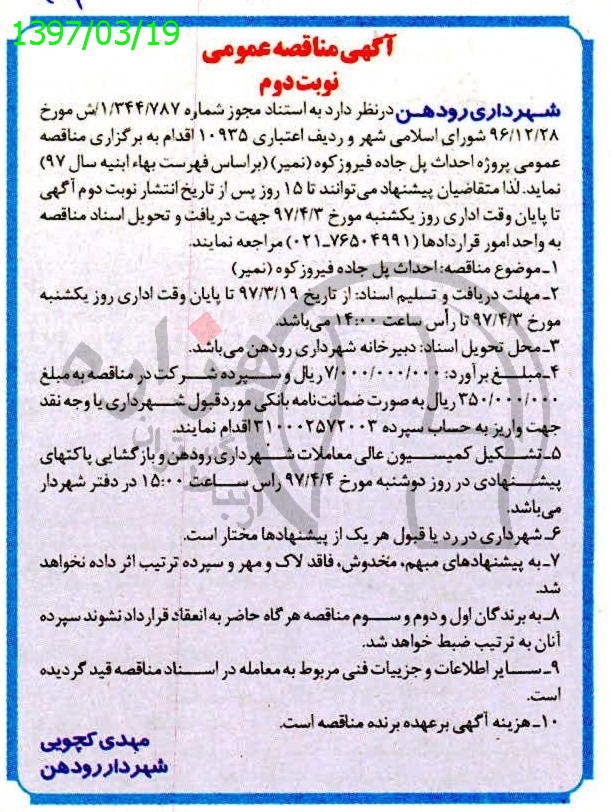 1397/03/19
آگهی مناقصه عمومی
نوبت دوم
شهرداری رودهن درنظر دارد به استناد مجوز شماره ۱/۳۴۴/۷۸۷/ش مورخ
۹۶/۱۲/۲۸ شورای اسلامی شهر و ردیف اعتباری ۱۰۹۳۵ اقدام به برگزاری مناقصه
عمومی پروژه احداث پل جاده فیروزکوه (نمیر) (براساس فهرست بهاء ابنیه سال ۹۷)
نماید. لذا متقاضیان پیشنهاد می‌توانند تا ۱۵ روز پس از تاریخ انتشار نوبت دوم آگهی
تا پایان وقت اداری روز یکشنبه مورخ ۹۷/۴/۳ جهت دریافت و تحویل اسناد مناقصه
به واحد امور قراردادها (۷۶۵۰۴۹۹۱-۰۲۱) مراجعه نمایند.
۱-موضوع مناقصه: احداث پل جاده فیروزکوه (نمیر)
۲-مهلت دریافت و تسلیم اسناد: از تاریخ ۹۷/۳/۱۹ تا پایان وقت اداری روز یکشنبه
مورخ ۹۷/۴/۳ تا رأس ساعت ۱۴:۰۰ می‌باشد.
۳-محل تحویل اسناد: دبیرخانه شهرداری رودهن می‌باشد.
۴-مبلغ برآورد: ۷/۰۰۰/۰۰۰/۰۰۰ ریال و سپرده شرکت در مناقصه به مبلغ
۳۵۰/۰۰۰/۰۰۰ ریال به صورت ضمانت‌نامه بانکی مورد قبول شهرداری یا وجه نقد
جهت واریز به حساب سپرده ۳۱۰۰۰۲۵۷۲۰۰۳ اقدام نمایند.
۵-تشکیل کمیسیون عالی معاملات شهرداری رودهن و بازگشایی پاکتهای
پیشنهادی در روز دوشنبه مورخ ۹۷/۴/۴ راس ساعت ۱۵:۰۰ در دفتر شهردار
می‌باشد.
۶-شهرداری در رد یا قبول هر یک از پیشنهادها مختار است.
۷-به پیشنهادهای مبهم، مخدوش، فاقد لاک و مهر و سپرده ترتیب اثر داده نخواهد
شد.
۸-به برندگان اول و دوم و سوم مناقصه هرگاه حاضر به انعقاد قرارداد نشوند سپرده
آنان به ترتیب ضبط خواهد شد.
۹-سایر اطلاعات و جزییات فنی مربوط به معامله در اسناد مناقصه قید گردیده
است.
۱۰-هزینه آگهی برعهده برنده مناقصه است.
مهدی کچویی
شهردار رودهن